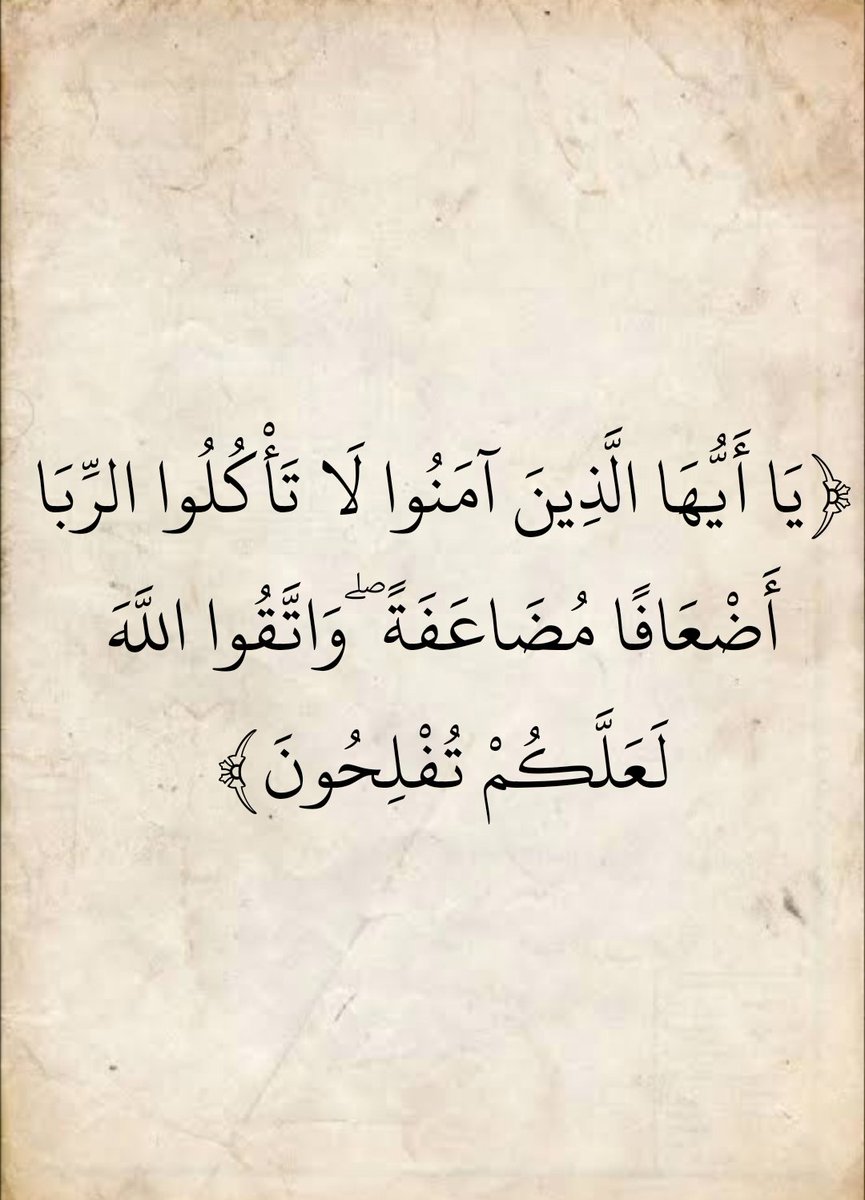 ﴿يَا أَيُّهَا الَّذِينَ آمَنُوا لَا تَأْكُلُوا الرِّبَا
أَضْعَافًا مُضَاعَفَةً ۖ وَاتَّقُوا اللَّهَ
لَعَلَّكُمْ تُفْلِحُونَ﴾